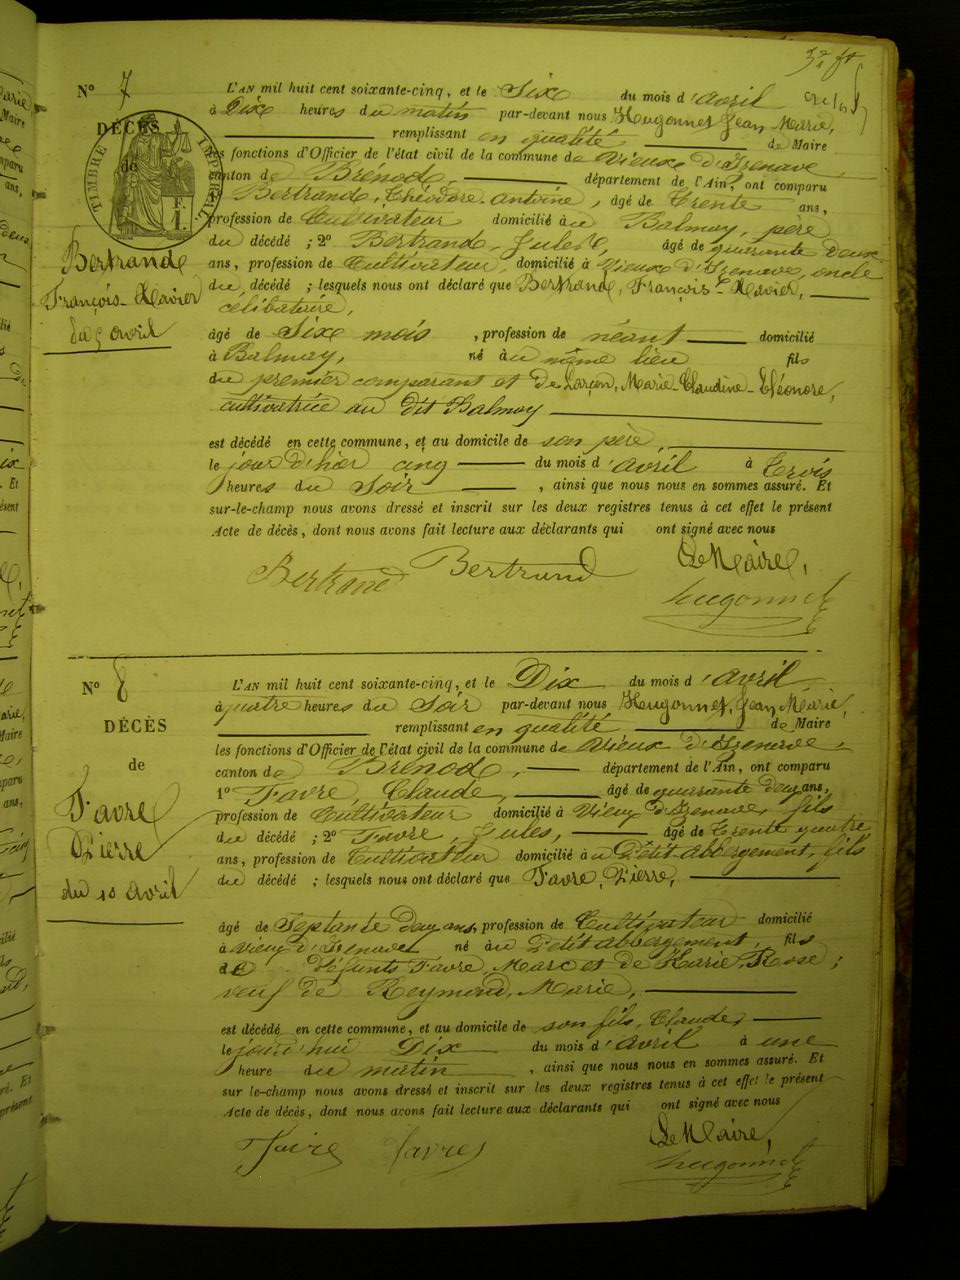 3e ft
N° 7
DÉCÈS
de
TIMBRE IMPÉRIAL
F.
1.
Bertrand
François-Xavier
du 5 avril
L'AN mil huit cent soixante-cinq, et le Six du mois d'avril
à Dix heures du matin par-devant nous Hugonnet Jean Marie,
remplissant en qualité de Maire
les fonctions d'Officier de l'état civil de la commune de Vieux d'Izenave,
canton de Brenod, département de l'Ain, ont comparu
1° Bertrand, Théodore Antoine, âgé de Trente ans,
profession de Cultivateur domicilié à Balmay, père
du décédé ; 2° Bertrand, Jules, âgé de quarante deux
ans, profession de Cultivateur, domicilié à Vieux d'Izenave, oncle
du décédé ; lesquels nous ont déclaré que Bertrand, François-Xavier,
célibataire,
âgé de Six mois, profession de néant domicilié
à Balmay, né au même lieu fils
du premier comparant et de Larçon, Marie-Claudine-Eléonore,
cultivatrice au dit Balmay
est décédé en cette commune, et au domicile de son père,
le jour d'hier cinq du mois d'avril à Trois
heures du Soir, ainsi que nous nous en sommes assuré. Et
sur-le-champ nous avons dressé et inscrit sur les deux registres tenus à cet effet le présent
Acte de décès, dont nous avons fait lecture aux déclarants qui ont signé avec nous
Bertrand Bertrand Le Maire,
hugonnet
N° 8
DÉCÈS
de
Favre
Pierre
du 10 avril
L'AN mil huit cent soixante-cinq, et le Dix du mois d'avril
à quatre heures du Soir par-devant nous Hugonnet, Jean Marie,
remplissant en qualité de Maire
les fonctions d'Officier de l'état civil de la commune de Vieux d'Izenave,
canton de Brenod, département de l'Ain, ont comparu
1° Favre, Claude, âgé de quarante deux ans,
profession de Cultivateur domicilié à Vieux d'Izenave, fils
du décédé ; 2° Favre, Jules, âgé de Trente quatre
ans, profession de Cultivateur domicilié au Petit abbergement, fils
du décédé ; lesquels nous ont déclaré que Favre, Pierre,
âgé de Septante deux ans, profession de Cultivateur domicilié
à Vieux d'Izenave né au Petit abbergement, fils
de défunts Favre, Marc et de Marie, Rose ;
veuf de Reymond, Marie,
est décédé en cette commune, et au domicile de son fils, Claude,
le jourd'hui Dix du mois d'avril à une
heure du matin, ainsi que nous nous en sommes assuré. Et
sur le-champ nous avons dressé et inscrit sur les deux registres tenus à cet effet le présent
Acte de décès, dont nous avons fait lecture aux déclarants qui ont signé avec nous
Favre favre Le Maire,
hugonnet